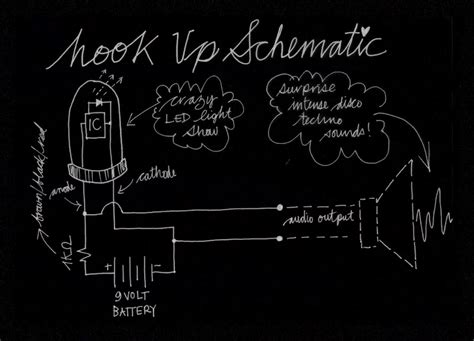 Hook Up Schematic
crazy
LED light
show
surprise
intense disco
techno
sounds!
IC
anode
cathode
brown/black/red
1KΩ
audio output
+
-
9 VOLT
BATTERY